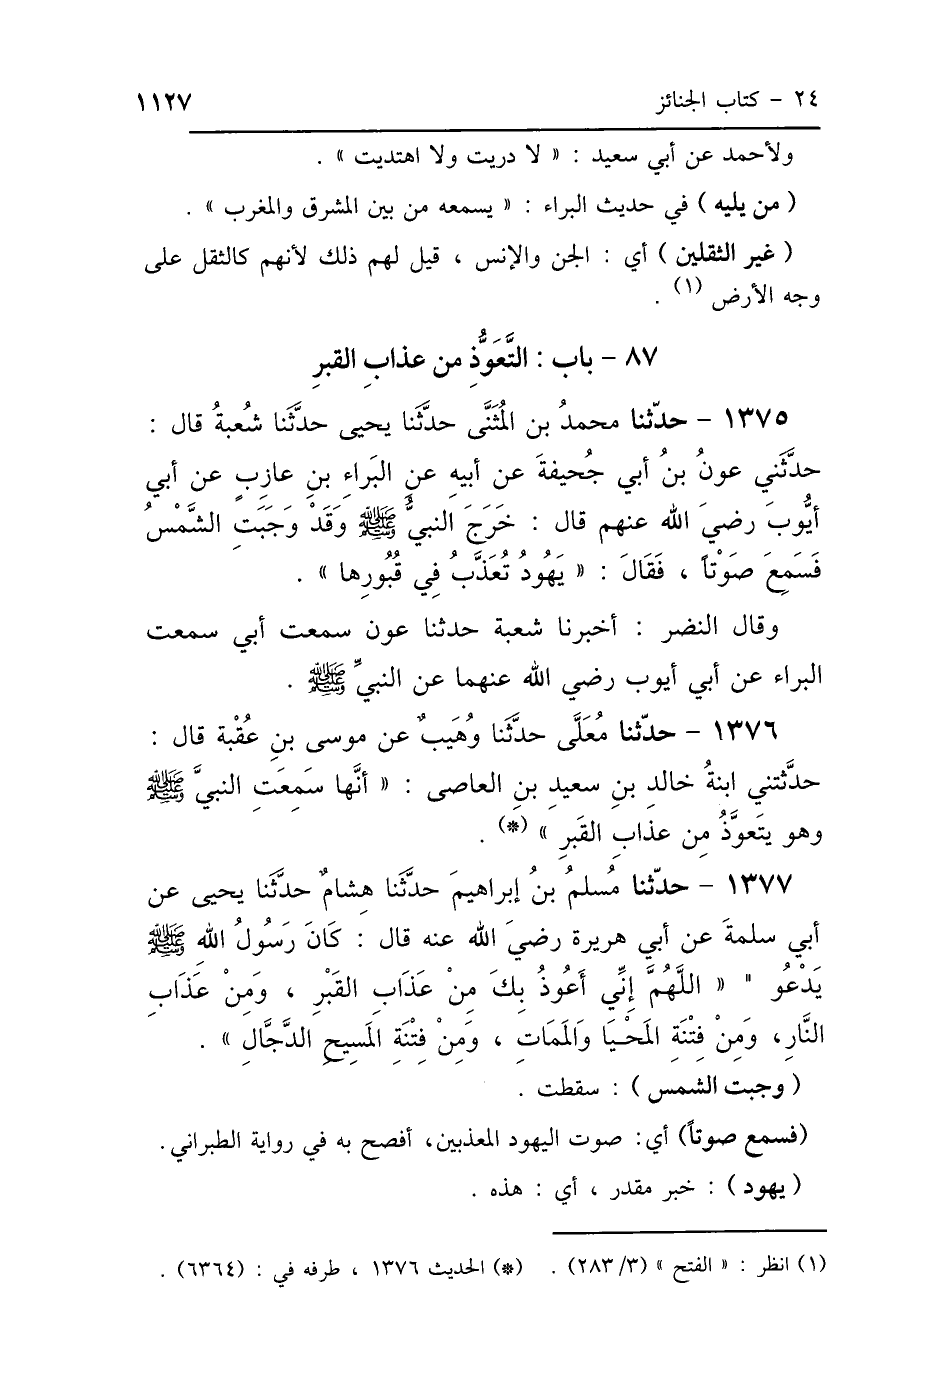 ٢٤ - كتاب الجنائز ١١٢٧
ولأحمد عن أبي سعيد : « لا دريت ولا اهتديت » .
( من يليه ) في حديث البراء : « يسمعه من بين المشرق والمغرب » .
( غير الثقلين ) أي : الجن والإنس ، قيل لهم ذلك لأنهم كالثقل على
وجه الأرض (١) .
٨٧ - باب : التَّعَوُّذِ من عذابِ القبرِ
١٣٧٥ - حدّثنا محمدُ بن المُثَنَّى حدَّثَنا يحيى حدَّثَنا شُعبةُ قال :
حدَّثَني عونُ بنُ أبي جُحيفةَ عن أبيه عنِ البَراءِ بنِ عازِبٍ عن أبي
أيُّوبَ رضيَ الله عنهم قال : خَرَجَ النبيُّ ﷺ وَقَدْ وَجَبَتِ الشَّمْسُ
فَسَمِعَ صَوْتاً ، فَقَالَ : « يَهُودُ تُعَذَّبُ فِي قُبُورِها » .
وقال النضر : أخبرنا شعبة حدثنا عون سمعت أبي سمعت
البراء عن أبي أيوب رضي الله عنهما عن النبيِّ ﷺ .
١٣٧٦ - حدّثنا مُعَلَّى حدَّثَنا وُهَيبٌ عن موسى بنِ عُقْبة قال :
حدَّثتني ابنةُ خالدِ بنِ سعيدِ بنِ العاصى : « أنَّها سَمِعَتِ النبيَّ ﷺ
وهو يتَعوَّذُ مِن عذابِ القَبرِ » (*) .
١٣٧٧ - حدّثنا مُسلمُ بنُ إبراهيمَ حدَّثَنا هِشامٌ حدَّثَنا يحيى عن
أبي سلمةَ عن أبي هريرة رضيَ الله عنه قال : كَانَ رَسُولُ الله ﷺ
يَدْعُو " « اللَّهُمَّ إِنِّي أَعُوذُ بِكَ مِنْ عَذَابِ القَبْرِ ، وَمِنْ عَذَابِ
النَّارِ، وَمِنْ فِتْنَةِ المَحْيَا وَالمَمَاتِ ، وَمِنْ فِتْنَةِ المَسِيحِ الدَّجَّالِ » .
( وجبت الشمس ) : سقطت .
(فسمع صوتاً) أي: صوت اليهود المعذبين، أفصح به في رواية الطبراني.
( يهود ) : خبر مقدر ، أي : هذه .
(١) انظر : « الفتح » (٢٨٣/٣) . (*) الحديث ١٣٧٦ ، طرفه في : (٦٣٦٤) .